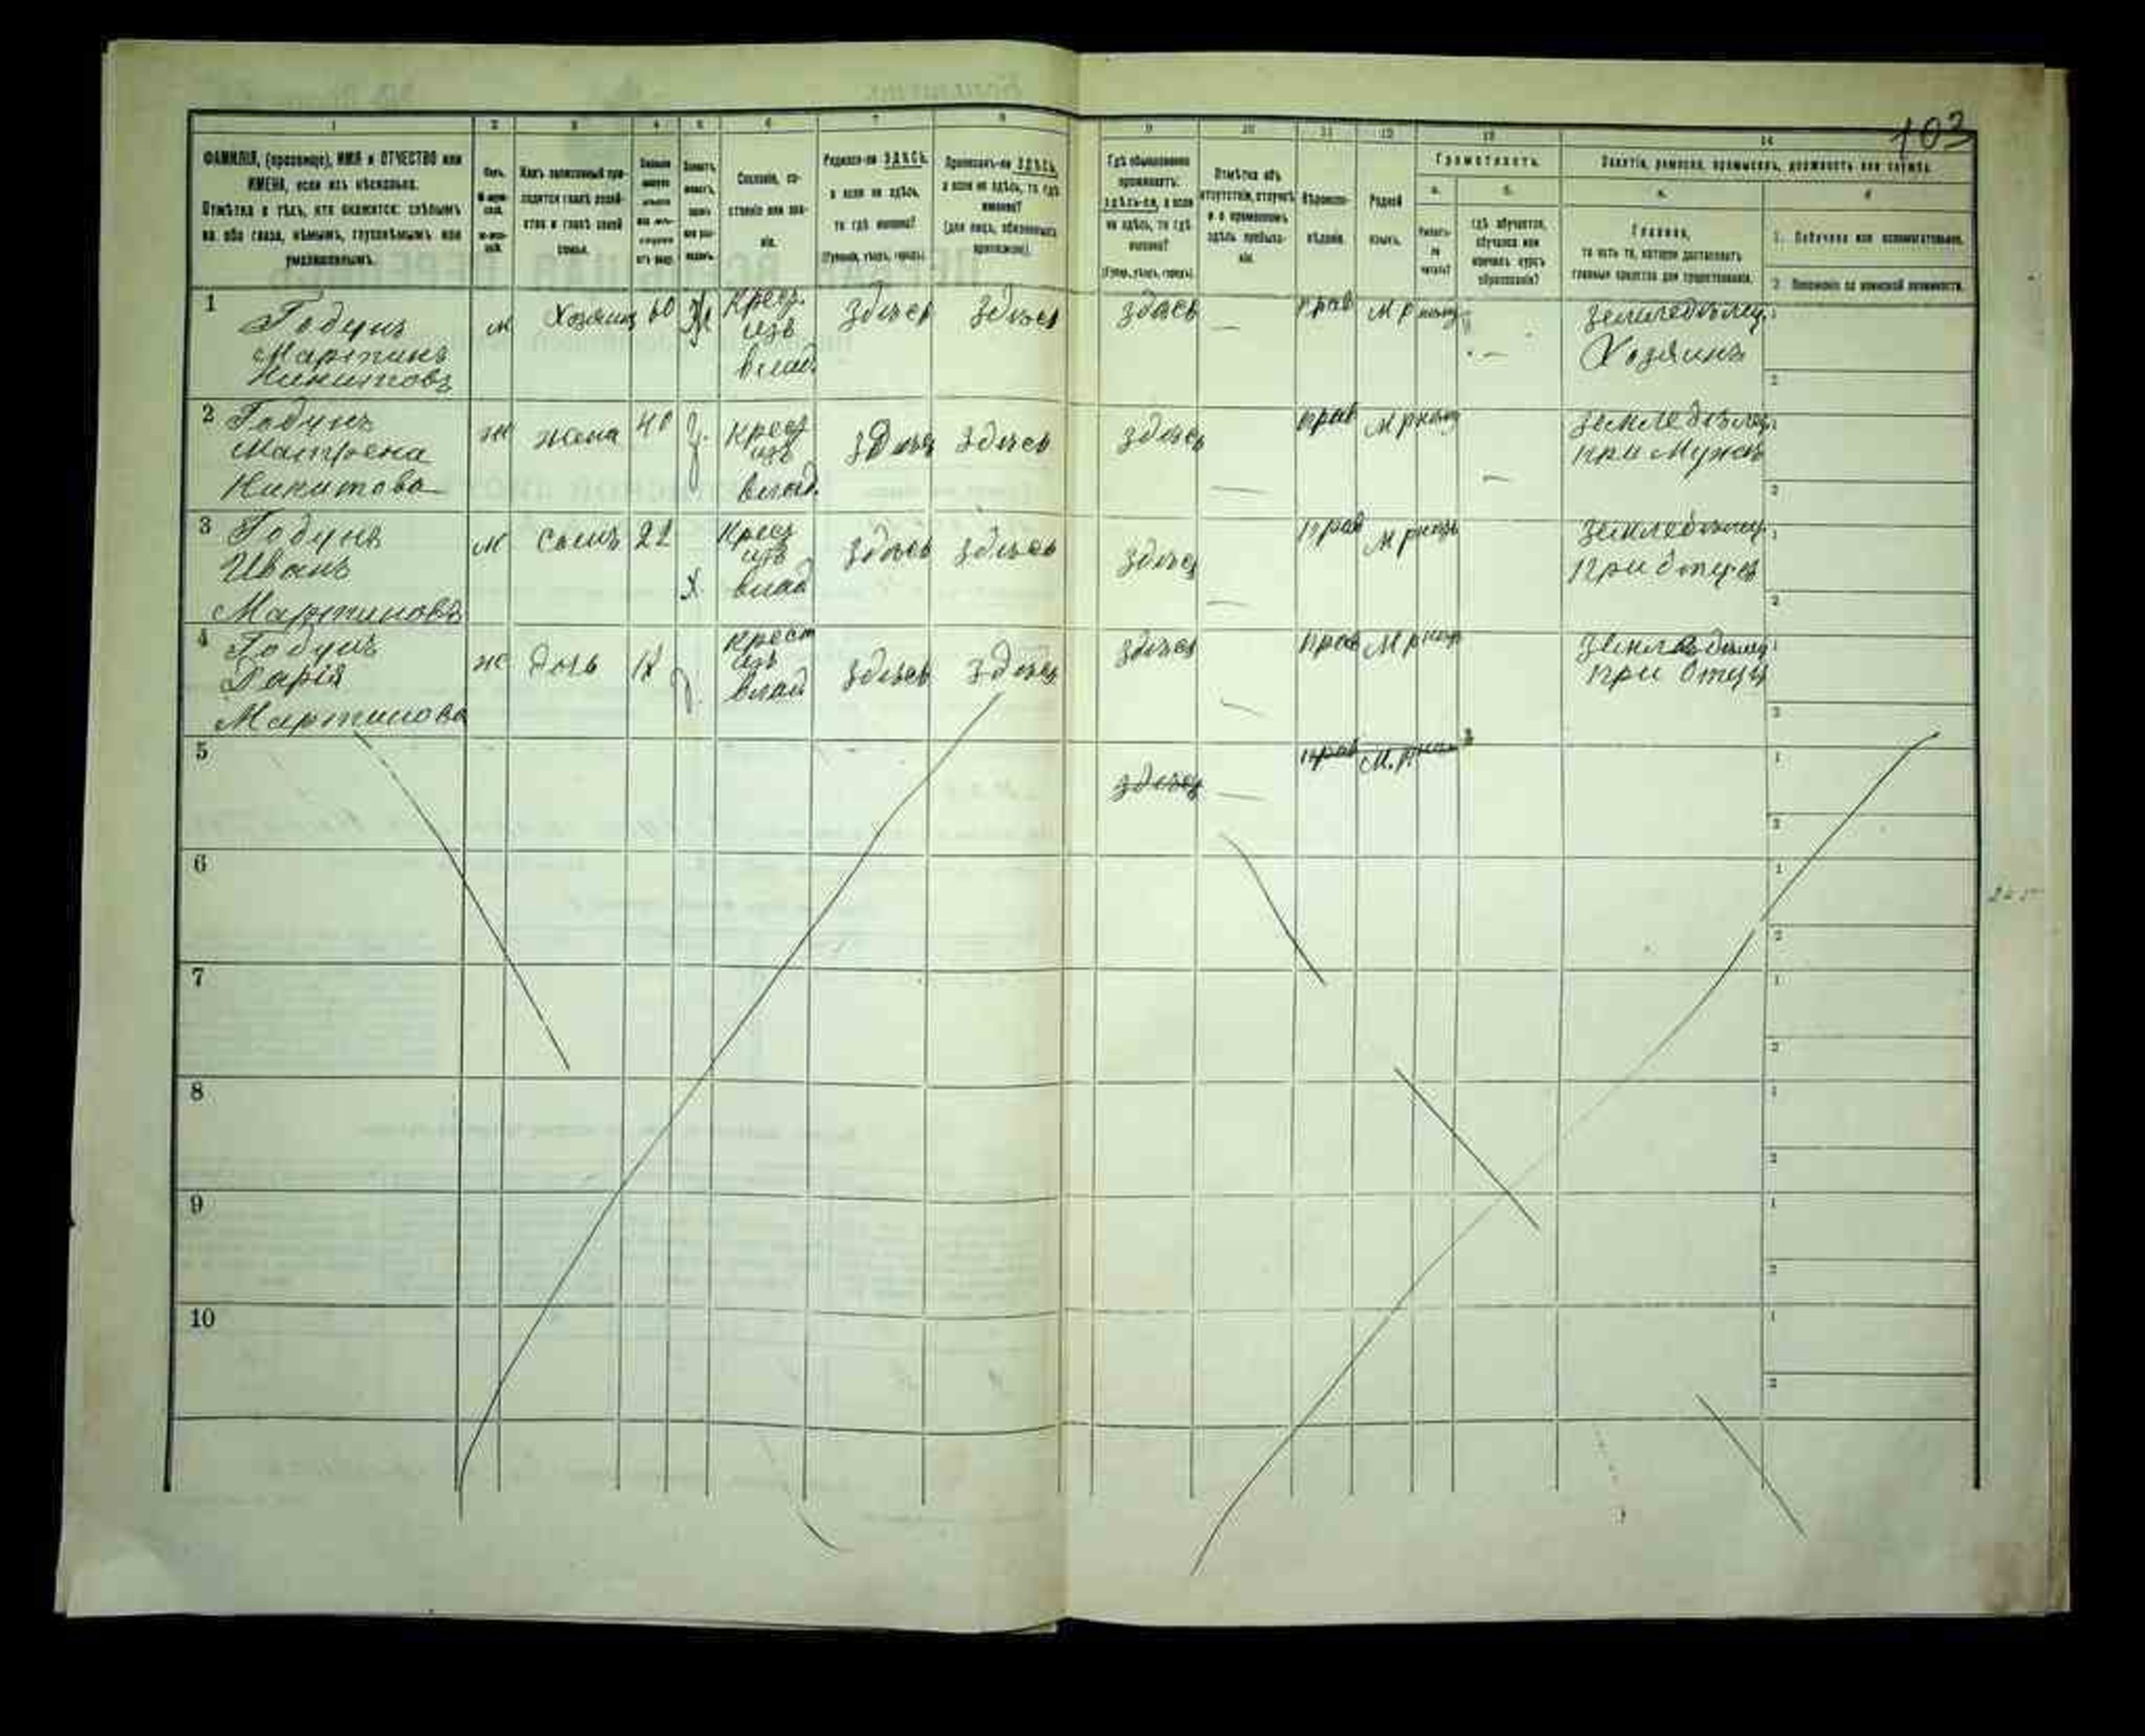 103
1 2 3 4 5 6 7 8 9 10 11 12 13 14
ФАМИЛІЯ, (прозвище), ИМЯ и ОТЧЕСТВО или
ИМЕНА, если ихъ нѣсколько.
Отмѣтка о тѣхъ, кто окажется: слѣпымъ
на оба глаза, нѣмымъ, глухонѣмымъ или
умалишеннымъ.
Полъ.
Какъ записанный при-
ходится главѣ хозяй-
ства и главѣ своей
семьи.
Сословіе, со-
стояніе или зва-
ніе.
Родился-ли ЗДѢСЬ,
а если не здѣсь,
то гдѣ именно?
(Губернія, уѣздъ, городъ).
Приписанъ-ли ЗДѢСЬ,
а если не здѣсь, то гдѣ
именно?
(для лицъ, обязанныхъ
припискою).
Гдѣ обыкновенно
проживаетъ:
здѣсь-ли, а если
не здѣсь, то гдѣ
именно?
(Губер., уѣздъ, городъ).
Отмѣтка объ
отсутствіи, отлучкѣ
и о временномъ
здѣсь пребыва-
ніи.
Вѣроиспо-
вѣданіе.
Родной
языкъ.
Грамотность.
а. б.
Умѣетъ-
ли
читать?
гдѣ обучается,
обучался или
кончилъ курсъ
образованія?
Занятіе, ремесло, промыселъ, должность или служба.
а.
Главное,
то есть то, которое доставляетъ
главныя средства для существованія.
1. Побочное или вспомогательное.
2. Положеніе по воинской повинности.
1 Годунъ
Мартинъ
Никитовъ
м Хозяинъ 60 Крест. изъ влад. здѣсь здѣсь здѣсь — Прав М р — земледѣлец. Хозяинъ 1 2
2 Годунъ
Матрена
Никитова
ж жена 40 Крест изъ влад. здѣсь здѣсь здѣсь — прав М р — земледѣлец. при Мужѣ 1 2
3 Годунъ
Иванъ
Мартиновъ
м сынъ 21 х Крест изъ влад здѣсь здѣсь здѣсь — Прав М р земледѣлец. при отцѣ 1 2
4 Годунъ
Дарія
Мартинова
ж дочь 18 крест изъ влад здѣсь здѣсь здѣсь — Прав М р земледѣлец. при отцѣ 1 2
5 здѣсь — прав М. р 1 2
6 1 2
7 1 2
8 1 2
9 1 2
10 1 2